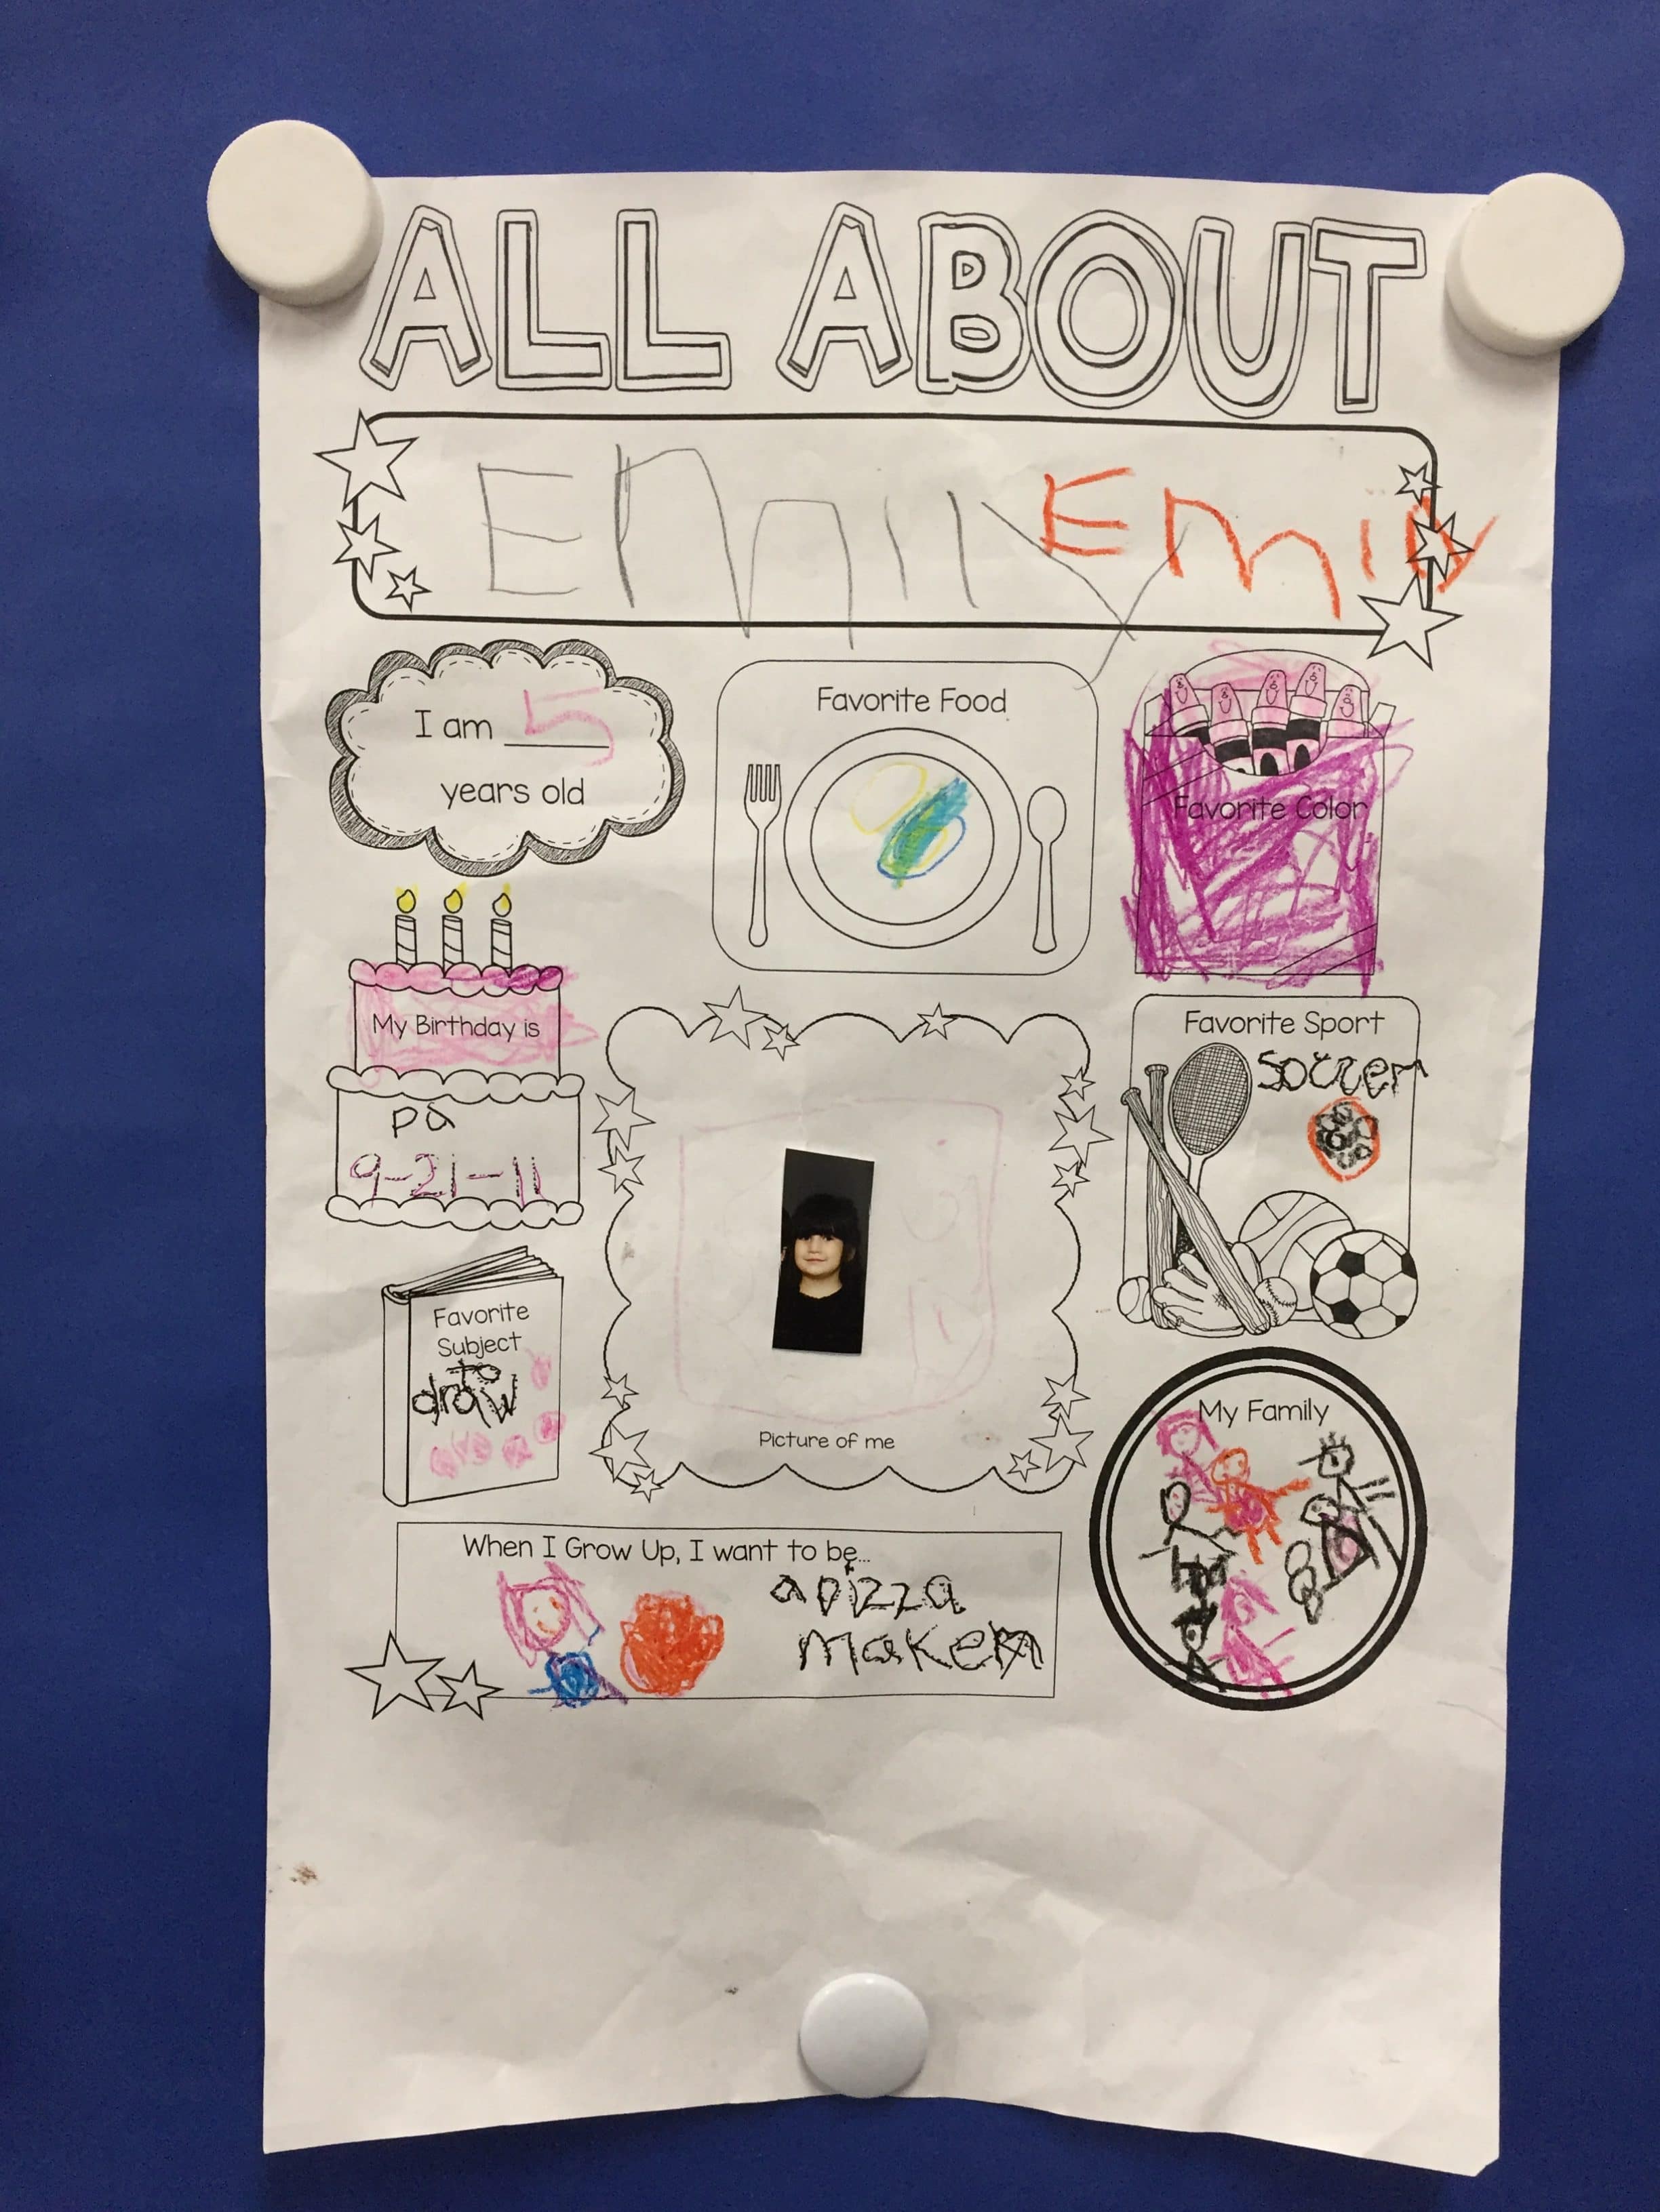 ALL ABOUT
EMILY Emily
I am 5
years old
Favorite Food
Favorite Color
My Birthday is
pa
9-21-11
Favorite Sport
soccer
Favorite
Subject
to
draw
Picture of me
My Family
When I Grow Up, I want to be...
a pizza
maker